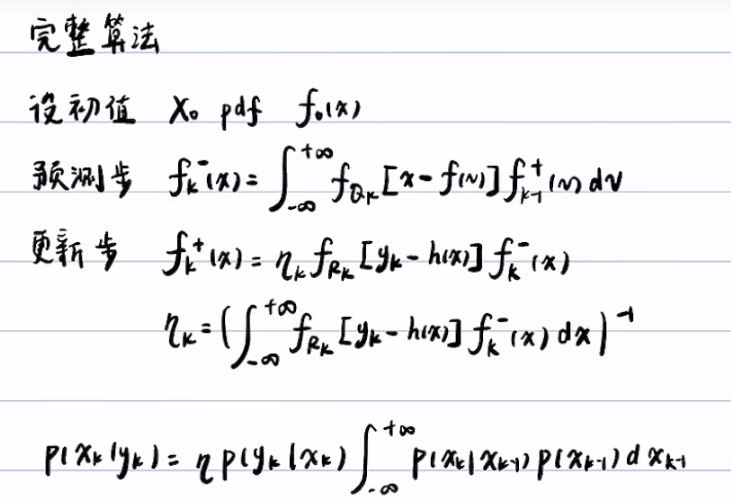 完整算法
设初值 X₀ pdf f₀(x)
预测步 fₖ⁻(x) = ∫_{-∞}^{+∞} f_{Qₖ}[x - f(v)] f_{k-1}⁺(v) dv
更新步 fₖ⁺(x) = ηₖ f_{Rₖ}[yₖ - h(x)] fₖ⁻(x)
ηₖ = (∫_{-∞}^{+∞} f_{Rₖ}[yₖ - h(x)] fₖ⁻(x) dx)⁻¹
p(xₖ|yₖ) = η p(yₖ|xₖ) ∫_{-∞}^{+∞} p(xₖ|x_{k-1}) p(x_{k-1}) d x_{k-1}